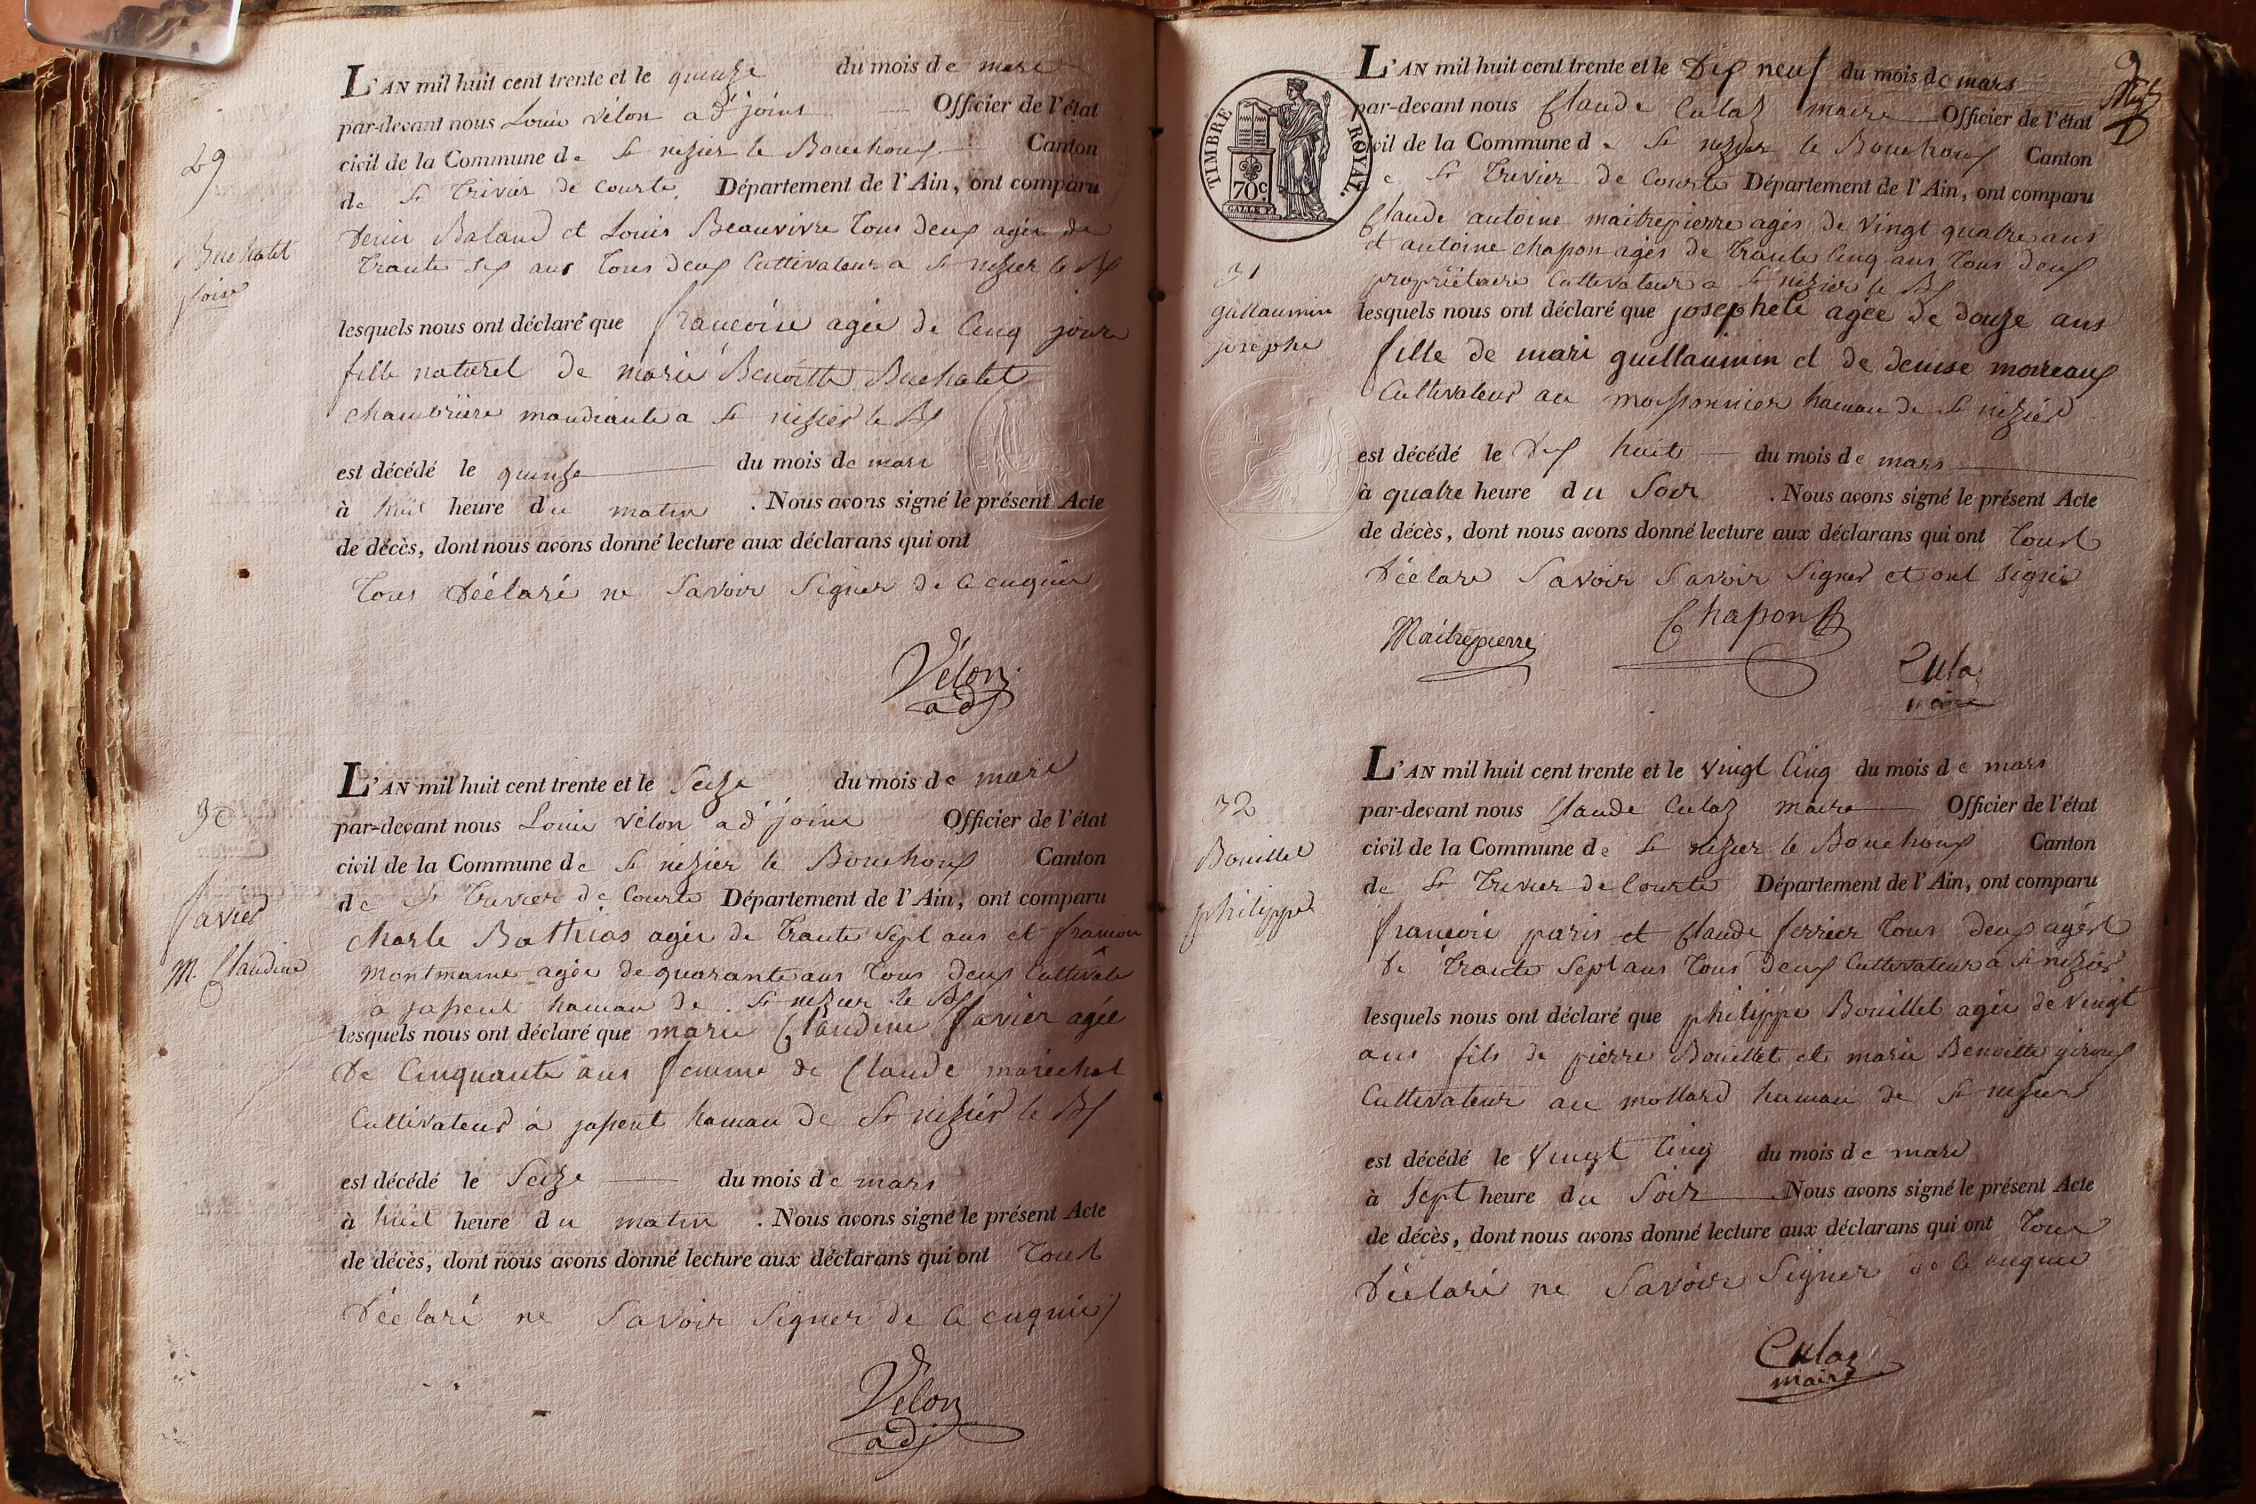 29
Buchalet
L'AN mil huit cent trente et le quinze du mois de mars
par-devant nous Louis Vélon adjoint Officier de l'état
civil de la Commune de St nizier le Bouchoux Canton
de St Trivier de Courte. Département de l'Ain, ont comparu
Denis Baland et Louis Beauvivre Tous deux agés de
Trante six ans Tous deux Cultivateur a St nizier le Bx
lesquels nous ont déclaré que françoise agée de Cinq jours
fille naturel de marie Benoitte Buchalet
chambrière mandiante a St nizier le Bx
est décédé le quinze du mois de mars
à huit heure du matin . Nous avons signé le présent Acte
de décès, dont nous avons donné lecture aux déclarans qui ont
Tous Déclaré ne Savoir Signer de ce enquis
Vélon
adj
30
favier
M. Claudine
L'AN mil huit cent trente et le Seize du mois de mars
par-devant nous Louis Vélon adjoint Officier de l'état
civil de la Commune de St nizier le Bouchoux Canton
de St Trivier de Courte Département de l'Ain, ont comparu
Charle Bathias agée de Trante Sept ans et
agée de quarante ans Tous deux Cultivate
a japent hamau de St nizier le Bx
lesquels nous ont déclaré que marie Claudine favier agée
De Cinquante ans femme de Claude maréchal
Cultivateur à japent hamau de St nizier le Bx
est décédé le Seize du mois de mars
à huit heure du matin . Nous avons signé le présent Acte
de décès, dont nous avons donné lecture aux déclarans qui ont Tout
Déclaré ne Savoir Signer de ce enquis
Vélon
adj
TIMBRE ROYAL.
70c
9
31
guillaumin
josephe
L'AN mil huit cent trente et le Dix neuf du mois de mars
par-devant nous Claude Culaz maire Officier de l'état
civil de la Commune de St nizier le Bouchoux Canton
de St Trevier de Courte Département de l'Ain, ont comparu
Claude antoine maitrepierre agés de Vingt quatre ans
et antoine chapon agés de Trante Cinq ans Tous deux
propriétaire Cultivateur a St nizier le Bx
lesquels nous ont déclaré que josephete agée de douze ans
fille de mari guillaumin et de denise moreaux
Cultivateur au moissonnier hamau de St nizier
est décédé le Dix huit du mois de mars
à quatre heure du Soir . Nous avons signé le présent Acte
de décès, dont nous avons donné lecture aux déclarans qui ont Tout
Déclare Savoir Savoir Signer et ont signés
Maitrepierre
Chapon
Culaz
maire
32
Bouillet
philippe
L'AN mil huit cent trente et le Vingt Cinq du mois de mars
par-devant nous Claude Culaz maire Officier de l'état
civil de la Commune de St nizier le Bouchoux Canton
de St Trevier de Courte Département de l'Ain, ont comparu
françois paris et Claude ferrier Tous deux agés
De Trante Sept ans Tous deux Cultivateur a St nizier
lesquels nous ont déclaré que philippe Bouillet agée de Vingt
ans fils de pierre Bouillet et marie Benoitte giroux
Cultivateur au mollard hamau de St nizier
est décédé le Vingt Cinq du mois de mars
à Sept heure du Soir Nous avons signé le présent Acte
de décès, dont nous avons donné lecture aux déclarans qui ont Tous
Déclaré ne Savoir Signer de ce enquis
Culaz
maire